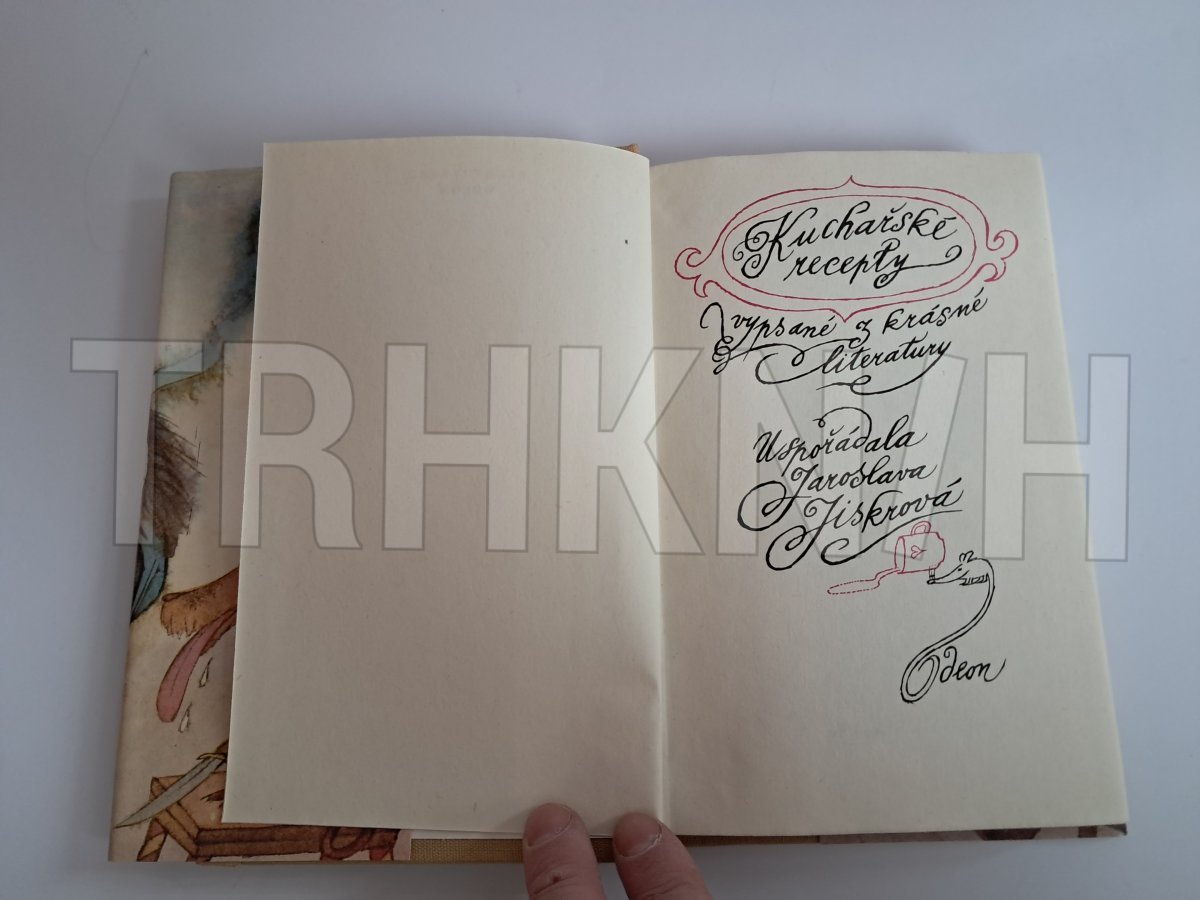 Kuchařské
recepty
vypsané z krásné
literatury
Uspořádala
Jaroslava
Jiskrová
Odeon
TRHKNIH